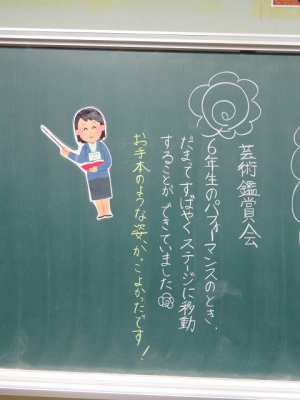 芸術鑑賞会
6年生のパフォーマンスのとき、
だまってすばやくステージに移動
することができていました
お手本のような姿、かっこよかったです！